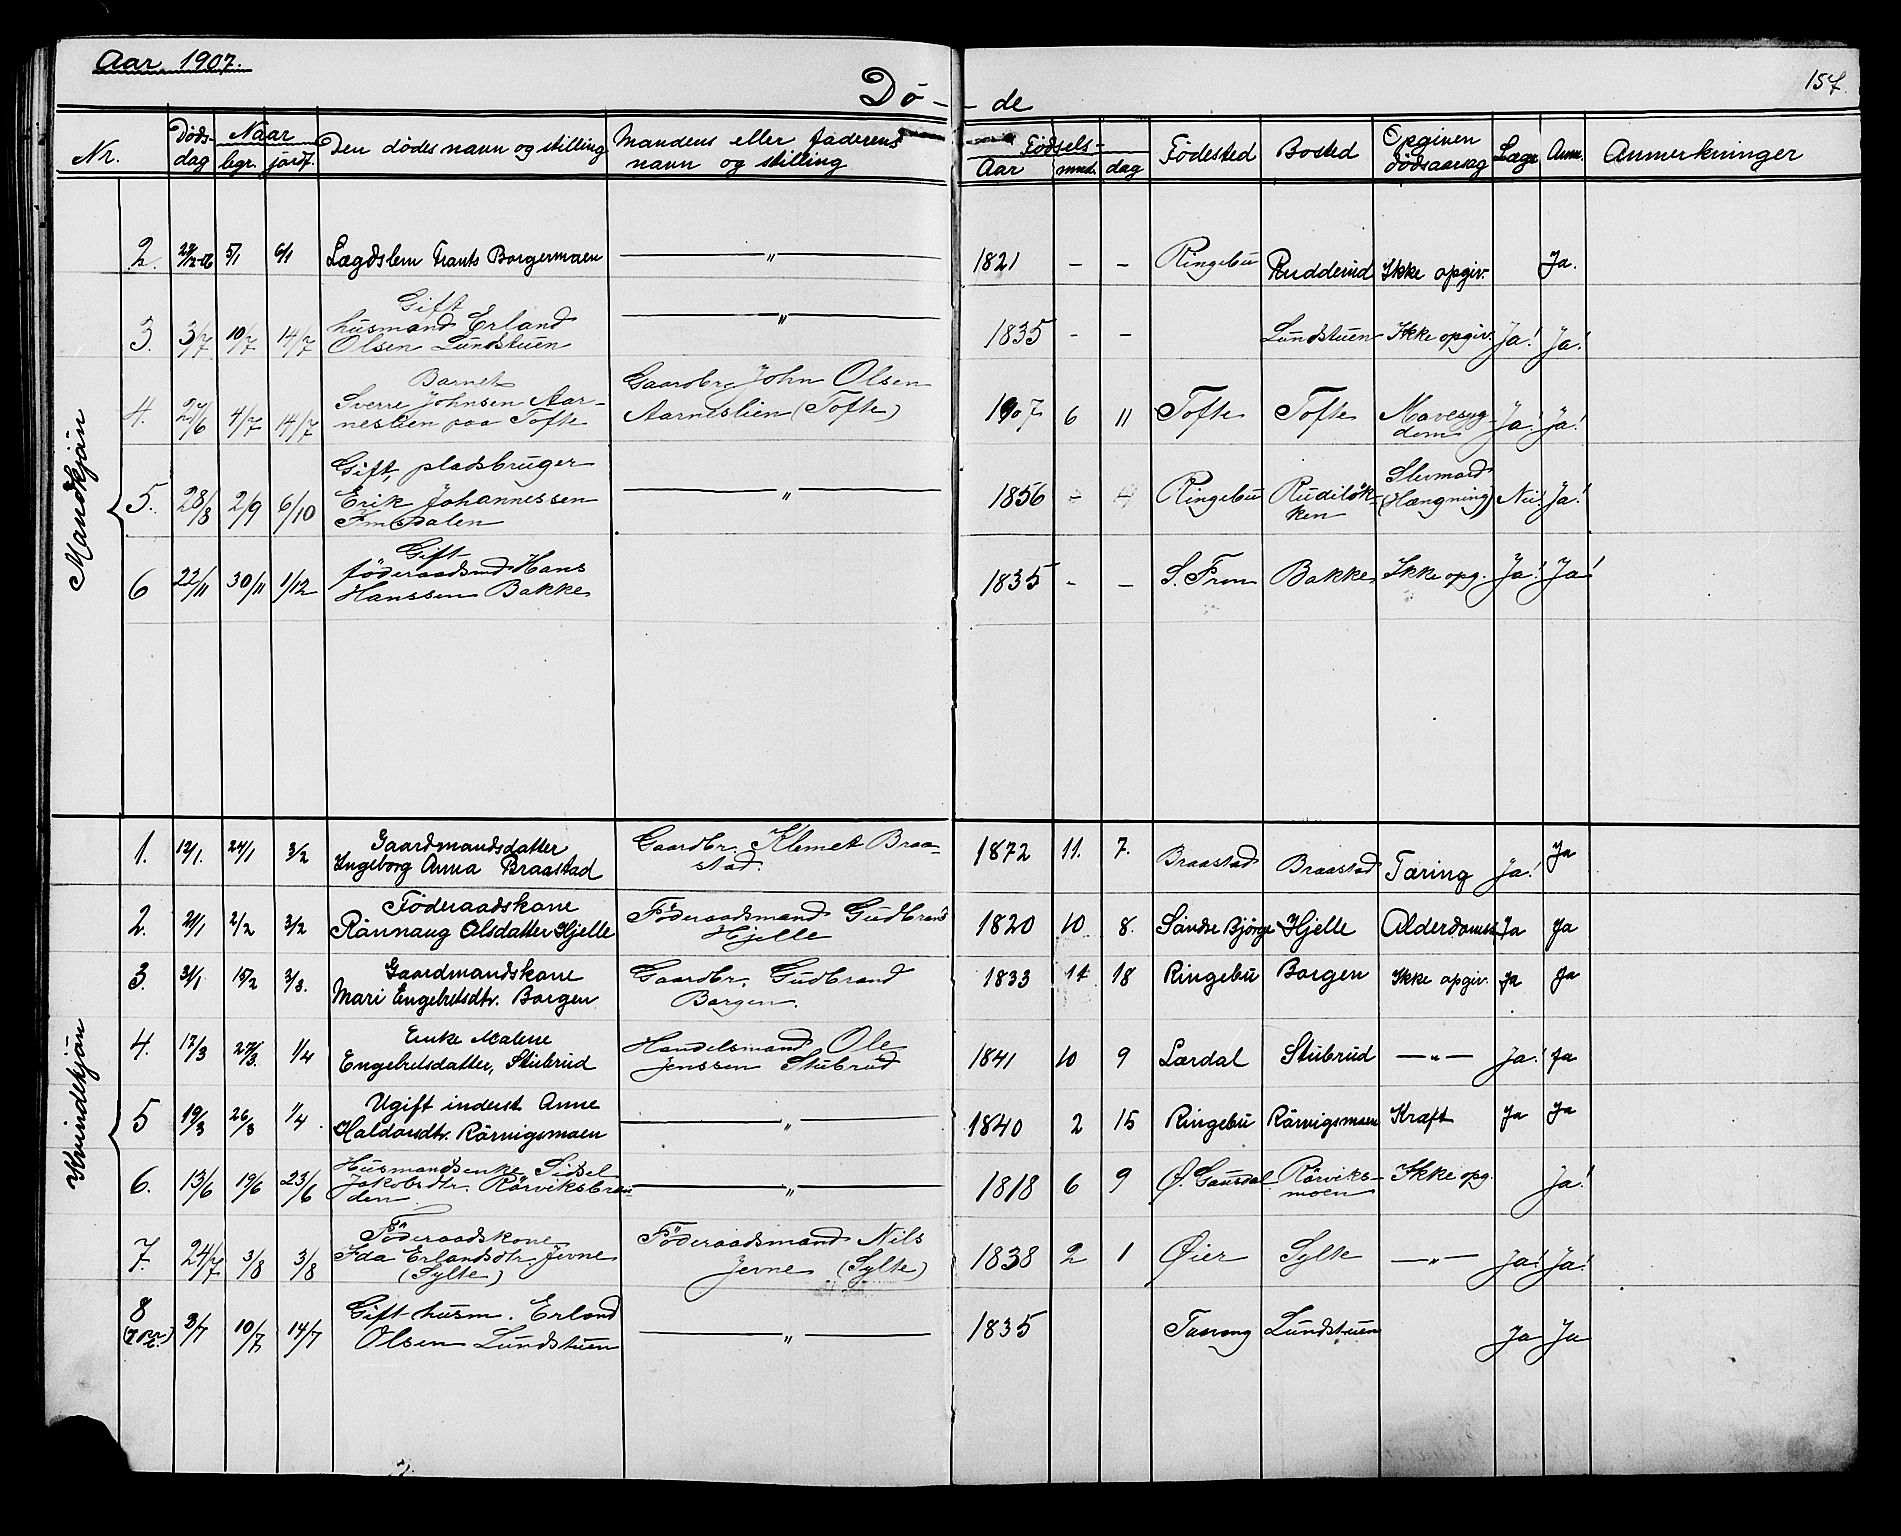 Aar 1907.
157.
Dø- -de
Nr. Døds-dag Naar bgr. jordf. Den dødes navn og stilling Mandens eller faderens navn og stilling Fødsels- Aar mnd. dag Fødested Bosted Opgiven dødsaarsag Læge Anm. Anmerkninger
Mandkjön
2. 5/1 6/1 Lægdslem Frants Borgermoen — " — 1821 - - Ringebu Rudderud Ikke opgiv. Ja.
Gift
3. 3/7 10/7 14/7 husmand Erland — " — 1835 - - Lundstuen Ikke opgiv. Ja! Ja!
Olsen Lundstuen
Barnet Gaardbr. John Olsen
4. 4/7 14/7 Sverre Johnsen Aar- Aarnestien (Tofte) 1907 6 11 Tofte Tofte Mavesyg- Ja! Ja!
nestien paa Tofte dom
Gift, pladsbruger Slvmord
5. 28/8 2/9 6/10 Erik Johannessen — " — 1856 - - Ringebu Rudiløk- (Hængning) Nei! Ja!
Imsdalen ken
Gift
6 22/11 30/11 1/12 föderaadsmd Hans — 1835 - - S. Fron Bakke Ikke opg. Ja! Ja!
Hanssen Bakke
Kvindekjön
1. 12/1. 24/1 3/2 Gaardmandsdatter Gaardbr. Klemet Braa- 1872 11. 7. Braastad Braastad Tæring Ja! Ja
Ingeborg Anna Braastad stad.
2. 21/1 2/2 3/2 Föderaadskone Föderaadsmand Gudbrand 1820 10 8. Söndre Bjørge Hjelle Alderdomss. Ja Ja
Rönnaug Olsdatter Hjelle Hjelle
3. 31/1 15/2 3/3. Gaardmandskone Gaardbr. Gudbrand 1833 18 Ringebu Borgen Ikke opgiv. Ja Ja
Mari Engebretsdtr. Borgen Borgen.
4. 17/3 27/3. 1/4 Enke Malene Handelsmand Ole 1841 10 9 Lærdal Stubrud — " — Ja! Ja
Engebretsdatter, Stubrud Jenssen Stubrud
5 19/3 26/3 1/4 Ugift inderst Anne — " — 1840 2 15 Ringebu Rörvigsmoen Kræft Ja Ja
Haldorsdtr. Rörvigsmoen
6. 13/6 19/6 23/6 Husmandsenke Sidsel — " — 1818 6 9 Ø. Gausdal Rörviks- Ikke opg. Ja!
Jakobsdtr. Rörviksbraa- moen
den.
7. 24/7 3/8 3/8 Föderaadskone Föderaadsmand Nils 1838 2 1 Øier Sylte — " — Ja! Ja!
Ida Erlandsdtr. Jevne Jevne (Sylte)
(Sylte)
8 3/7 10/7 14/7 Gift husm. Erland — " — 1835 Lundstuen Ja Ja
Olsen Lundstuen